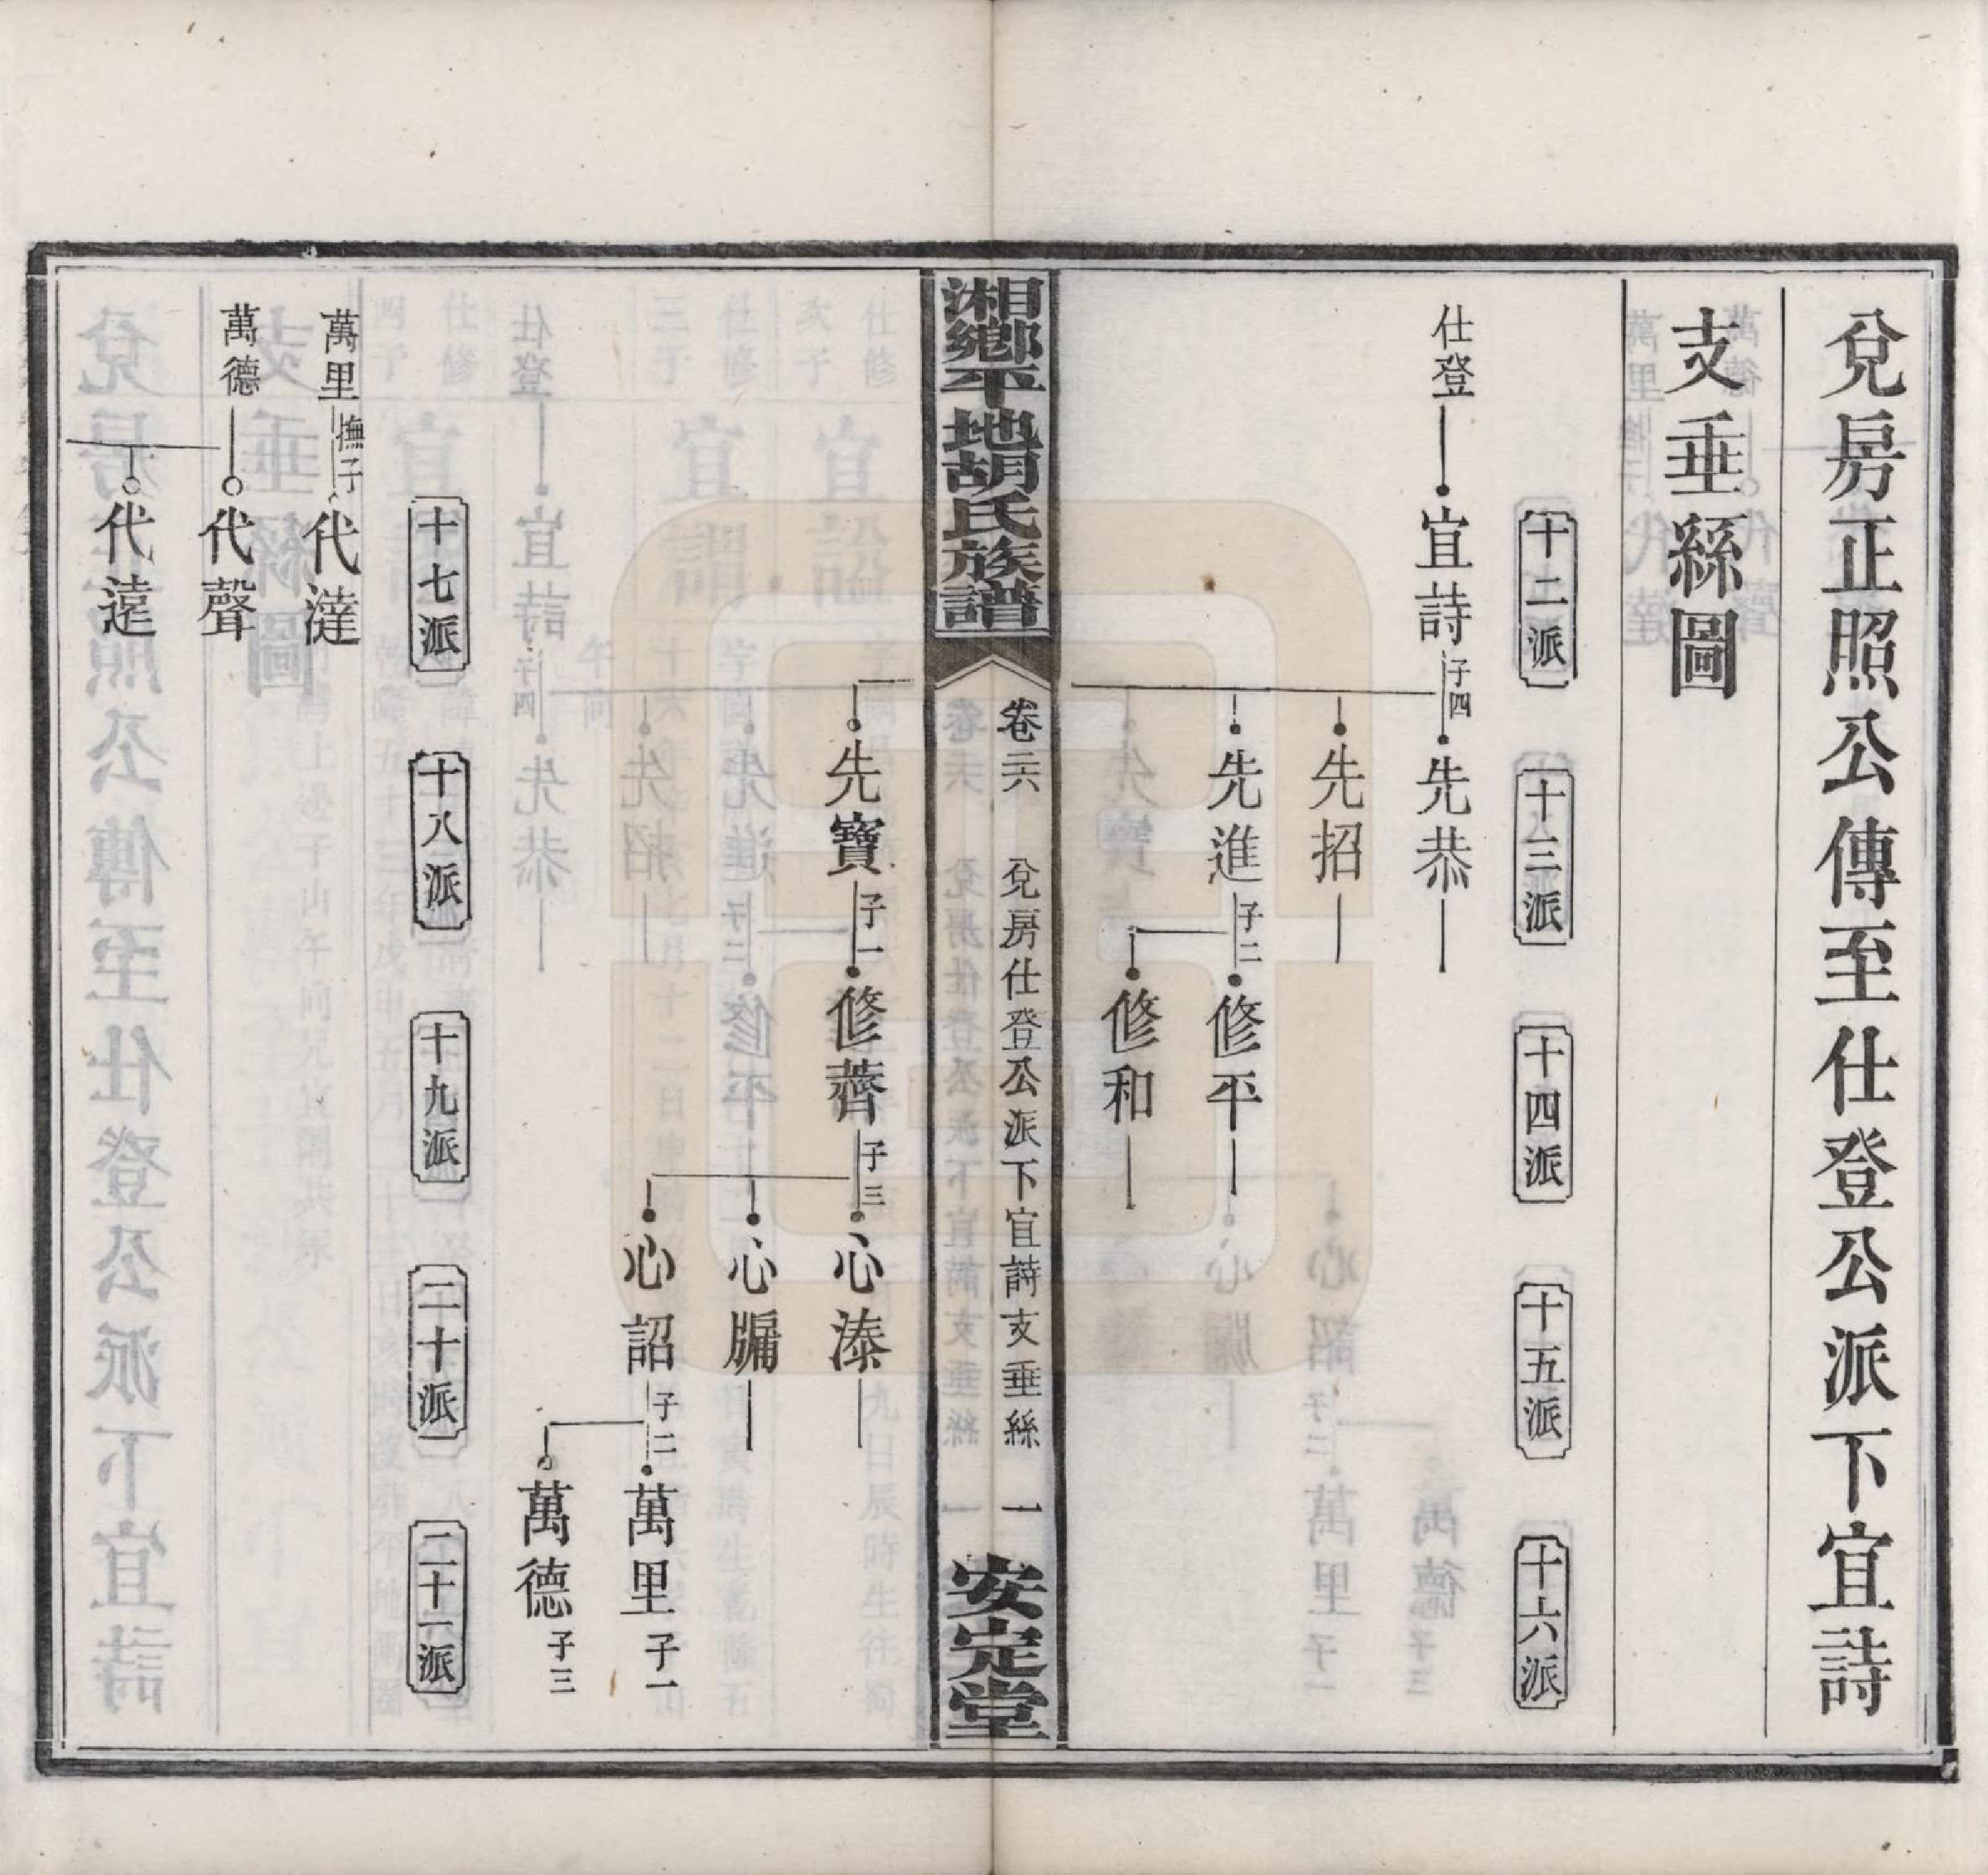 兌房正照公傳至仕登公派下宜詩
支垂絲圖
十二派
十三派
十四派
十五派
十六派
仕登
宜詩
子四
先恭
先招
先進
子二
修平
修和
湘鄉平地胡氏族譜
卷二六
兌房仕登公派下宜詩支垂絲
一
安定堂
先寶
子一
修薺
子三
心溱
心牖
心詔
子二
萬里
子一
萬德
子三
十七派
十八派
十九派
二十派
二十一派
萬里
撫子
代澾
萬德
代聲
代遠